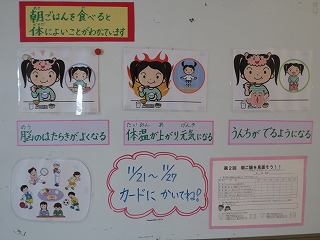 朝ごはんを食べると
体によいことがわかっています
脳のはたらきがよくなる
体温が上がり元気になる
うんちがでるようになる
11/21〜11/27
カードに かいてね!